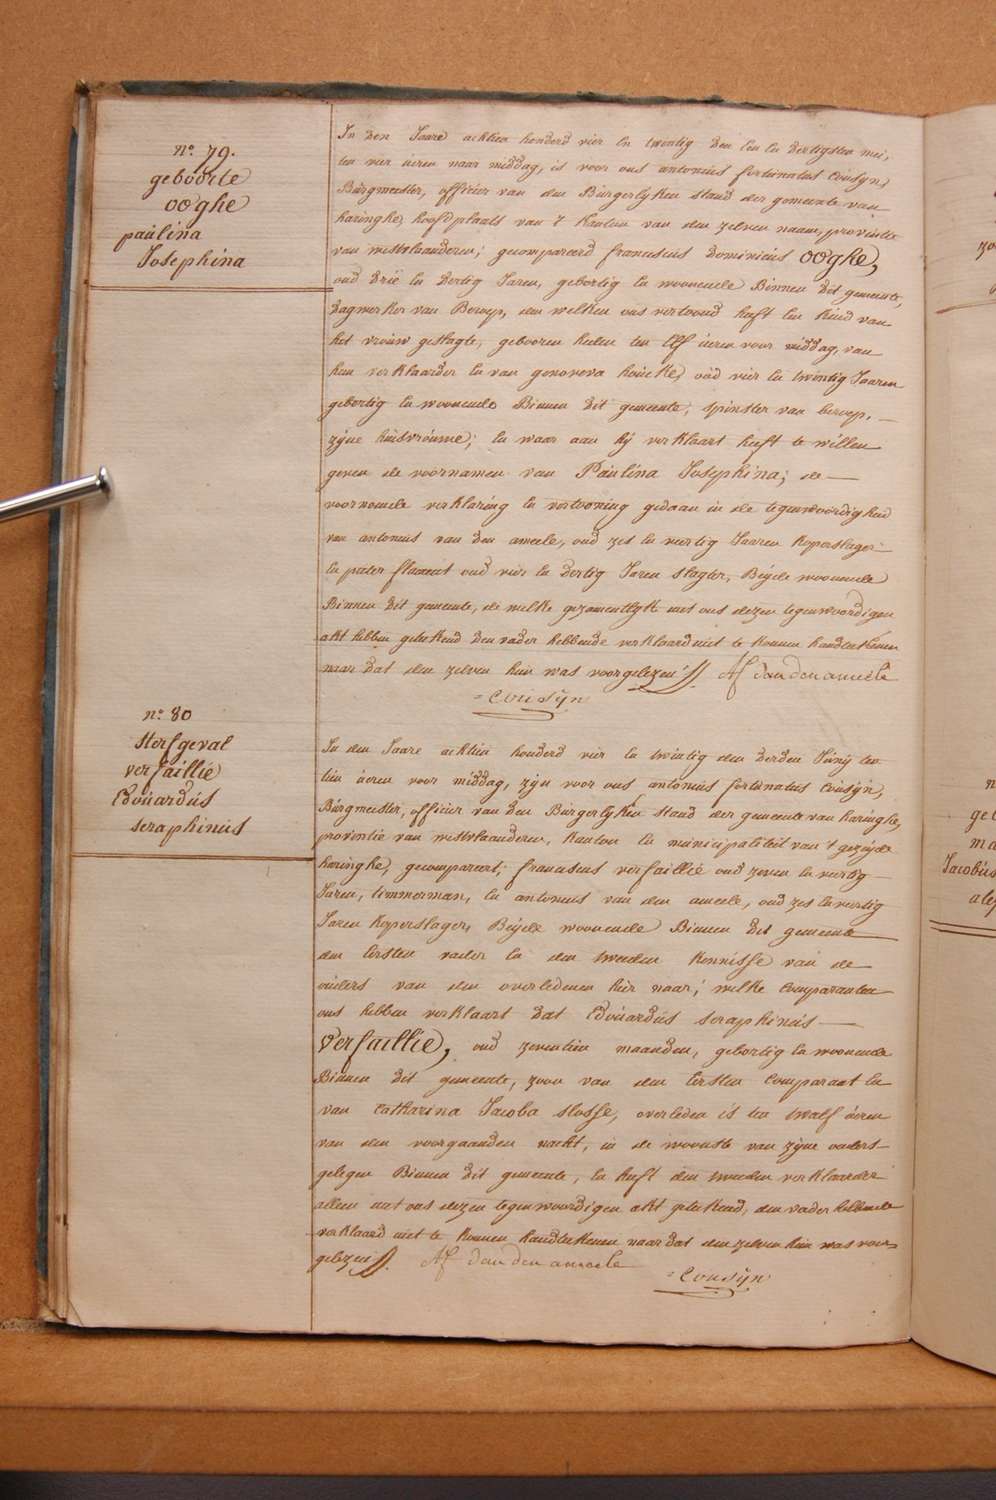 n.º 79.
geboorte
ooghe
paulina
Josephina
In den Jaare achtien honderd vier en twintig den een en dertigsten mei,
ten vier ueren naar middag, is voor ons antonius fortunatus Cousyn,
Burgmeester, officier van den Burgerlyken stand der gemeente van
haringhe, hoofdplaats van 't kanton van den zelven naam, provintie
van westvlaanderen; gecompareerd franciscus dominicus ooghe,
oud drie en dertig Jaren, gebortig en woonende Binnen dit gemeente,
dagwerker van Beroep, den welken ons vertoond heeft een kind van
het vrouw geslagte, geboren heden ten elf ueren voor middag, van
hem verklaarder en van genoveva houcke, oud vier en twintig Jaaren
gebortig en woonende Binnen dit gemeente, spinster van beroep,
zyne huisvrouwe; en waar aan hij verklaart heeft te willen
geven de voornamen van Paulina Josephina; de
voornoemde verklaring en vertooning gedaan in de tegenwoordigheid
van antonius van den ameele, oud zes en veertig Jaaren koperslager
en pieter flament oud vier en dertig Jaren slagter, Beyde woonende
Binnen dit gemeente, de welke gezamentlyk met ons dezen tegenwoordigen
akt hebben geteekend den vader hebbende verklaard niet te konnen handteekenen
naar dat den zelven hun was voorgelezen. AF van den ameele
= Cousÿn
n.º 80
sterfgeval
verfaillie
Edouardus
seraphinus
In den Jaare achtien honderd vier en twintig den derden Junÿ ten
tien ueren voor middag, zÿn voor ons antonius fortunatus Cousÿn,
Burgmeester, officier van den Burgerlyken stand der gemeente van haringhe,
provintie van westvlaanderen, kanton en municipaliteit van 't gezeyde
haringhe, gecompareert; franciscus verfaillie oud zeven en veertig
Jaren, timmerman, en antonius van den ameele, oud zes en veertig
Jaren koperslager, Beÿde woonende Binnen dit gemeente
den eersten vader en den tweeden kennisse van de
ouders van den overledenen hier naar; welke Comparanten
ons hebben verklaart dat Edouardus seraphinus
verfaillie, oud zeventien maanden, gebortig en woonende
Binnen dit gemeente, zoon van den eersten Comparant en
van Catharina Jacoba slosse, overleden is ten twalf ueren
van den voorgaanden nacht, in de woonste van zÿne ouders
gelegen Binnen dit gemeente, en heeft den tweeden verklaarder
alleen met ons dezen tegenwoordigen akt geteekend, den vader hebbende
verklaard niet te konnen handteekenen naar dat den zelven hun was voor=
gelezen. AF van den ameele
= Cousÿn